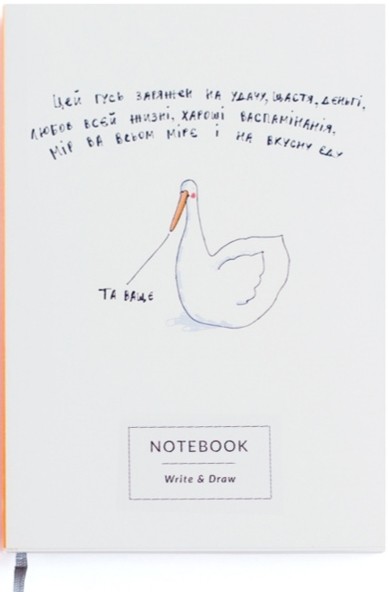 Цей гусь заряжен на удачу, щастя, дєньгі,
любов всєй жизні, хароші васпамінанія,
мір ва всьом мірє і на вкусну єду
Та ваще
NOTEBOOK
Write & Draw